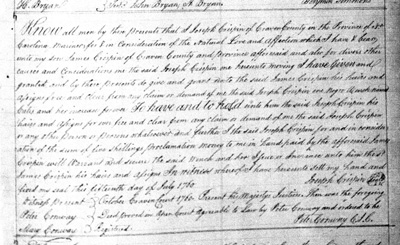 H. Bryan Test John Bryan H. Bryan Benjamin Simmons
Know all men by these presents that I Joseph Crispin of Craven County in the Province of No
Carolina for & in Consideration of the Natural Love and affection which I have & bear
unto my James Crispin of Craven County and province aforesaid and also for divers other
causes and Considerations me the said Joseph Crispin me hereunto moving I have given and
granted and by these presents do give and grant unto the said James Crispin his hairs and
assigns free and clear from any claim or demand of me the said Joseph Crispin one Negro Wench named
and her To have and to hold unto him the said Joseph Crispin his
hairs and assigns for ever free and clear from any claim or demand of me the said Joseph Crispin
or any other Person or Persons whatsoever and further I the said Joseph Crispin for and in consider
ation of the sum of five Shillings proclamation money to me in hand paid by the aforesaid James
Crispin will Warrant and secure the said Wench and her Increase unto him the sd
James Crispin his hairs and assigns In witness whereof I have hereunto sett my hand and
fixed my seal this fifteenth day of July 1760 Joseph Crispin
Test present October Craven Court 1760. Present his Majestys Justices Then was the foregoing
Peter Conway Deed proved in Open Court Agreeable to Law by Peter Conway and ordered to be
Mary Conway Registered Peter Conway C.I.C.